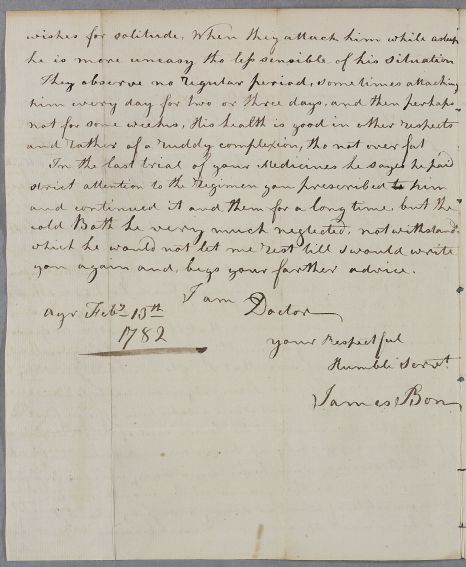 wishes for solitude, When they attack him while asleep
he is more uneasy tho less sensible of his situation
They observe no regular period, sometimes attacking
him every day for two or three days, and then perhaps
not for some weeks, His health is good in other respects
and rather of a ruddy complexion, tho not over fat
In the last trial of your Medicines he says he paid
strict attention to the Regimen you prescribed to him
and continued it and them for a long time, but the
cold Bath he very much neglected, notwithstand
which he would not let me rest till I would write
you again and, begs your farther advice.
I am Doctor
Ayr Feby 15th
1782
your Respectful
Humble Servt
James Bon